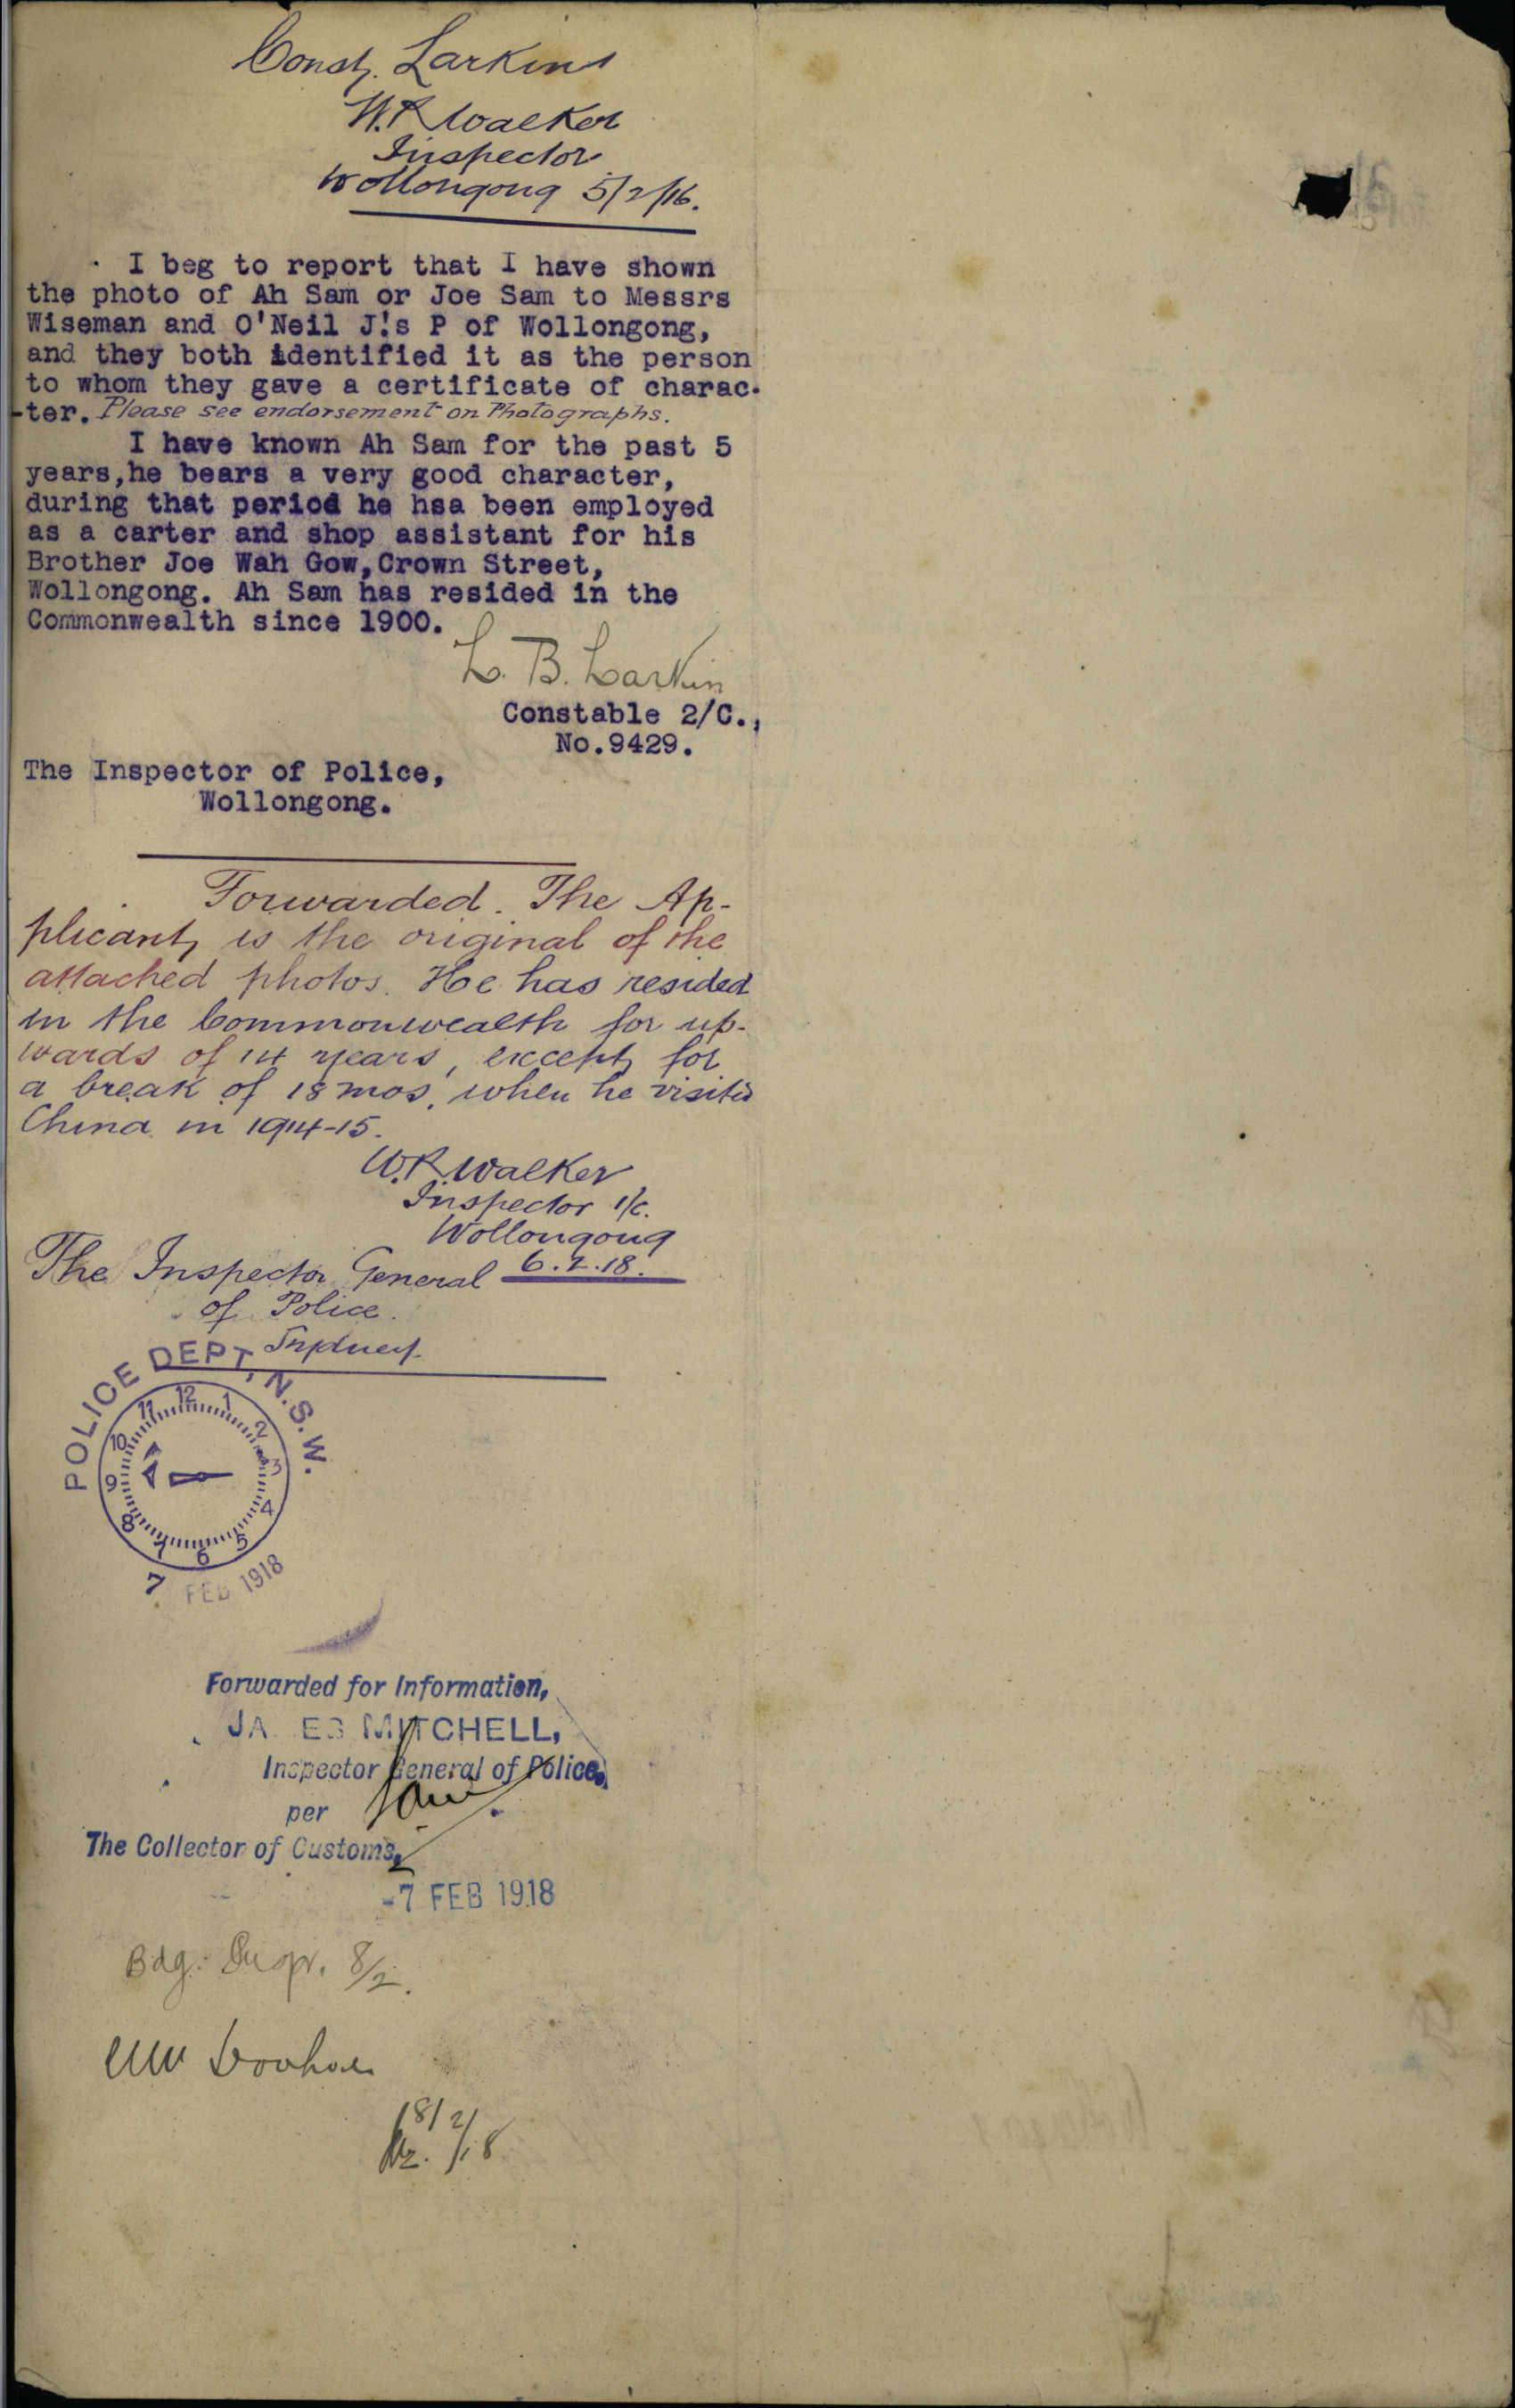 Const. Larkins
W.R Walker
Inspector
Wollongong 5/2/16.
I beg to report that I have shown
the photo of Ah Sam or Joe Sam to Messrs
Wiseman and O'Neil J!s P of Wollongong,
and they both identified it as the person
to whom they gave a certificate of charac-
-ter. Please see endorsement on Photographs.
I have known Ah Sam for the past 5
years,he bears a very good character,
during that period he hsa been employed
as a carter and shop assistant for his
Brother Joe Wah Gow,Crown Street,
Wollongong. Ah Sam has resided in the
Commonwealth since 1900.
L. B. Larkin
Constable 2/C.,
No.9429.
The Inspector of Police,
Wollongong.
Forwarded. The Ap-
plicant, is the original of the
attached photos. He has resided
in the Commonwealth for up-
wards of 14 years, except, for
a break of 18 mos. when he visited
China in 1914-15.
W.R. Walker
Inspector 1/c.
Wollongong
6.2.18.
The Inspector General
of Police.
Sydney.
POLICE DEPT, N.S.W.
12 1 2 3 4 5 6 7 8 9 10 11
7 FEB 1918
Forwarded for Information,
JA ES MITCHELL,
Inspector General of Police,
per
The Collector of Customs,
-7 FEB 1918
Bdg. Inspr. 8/2.
18/2/18